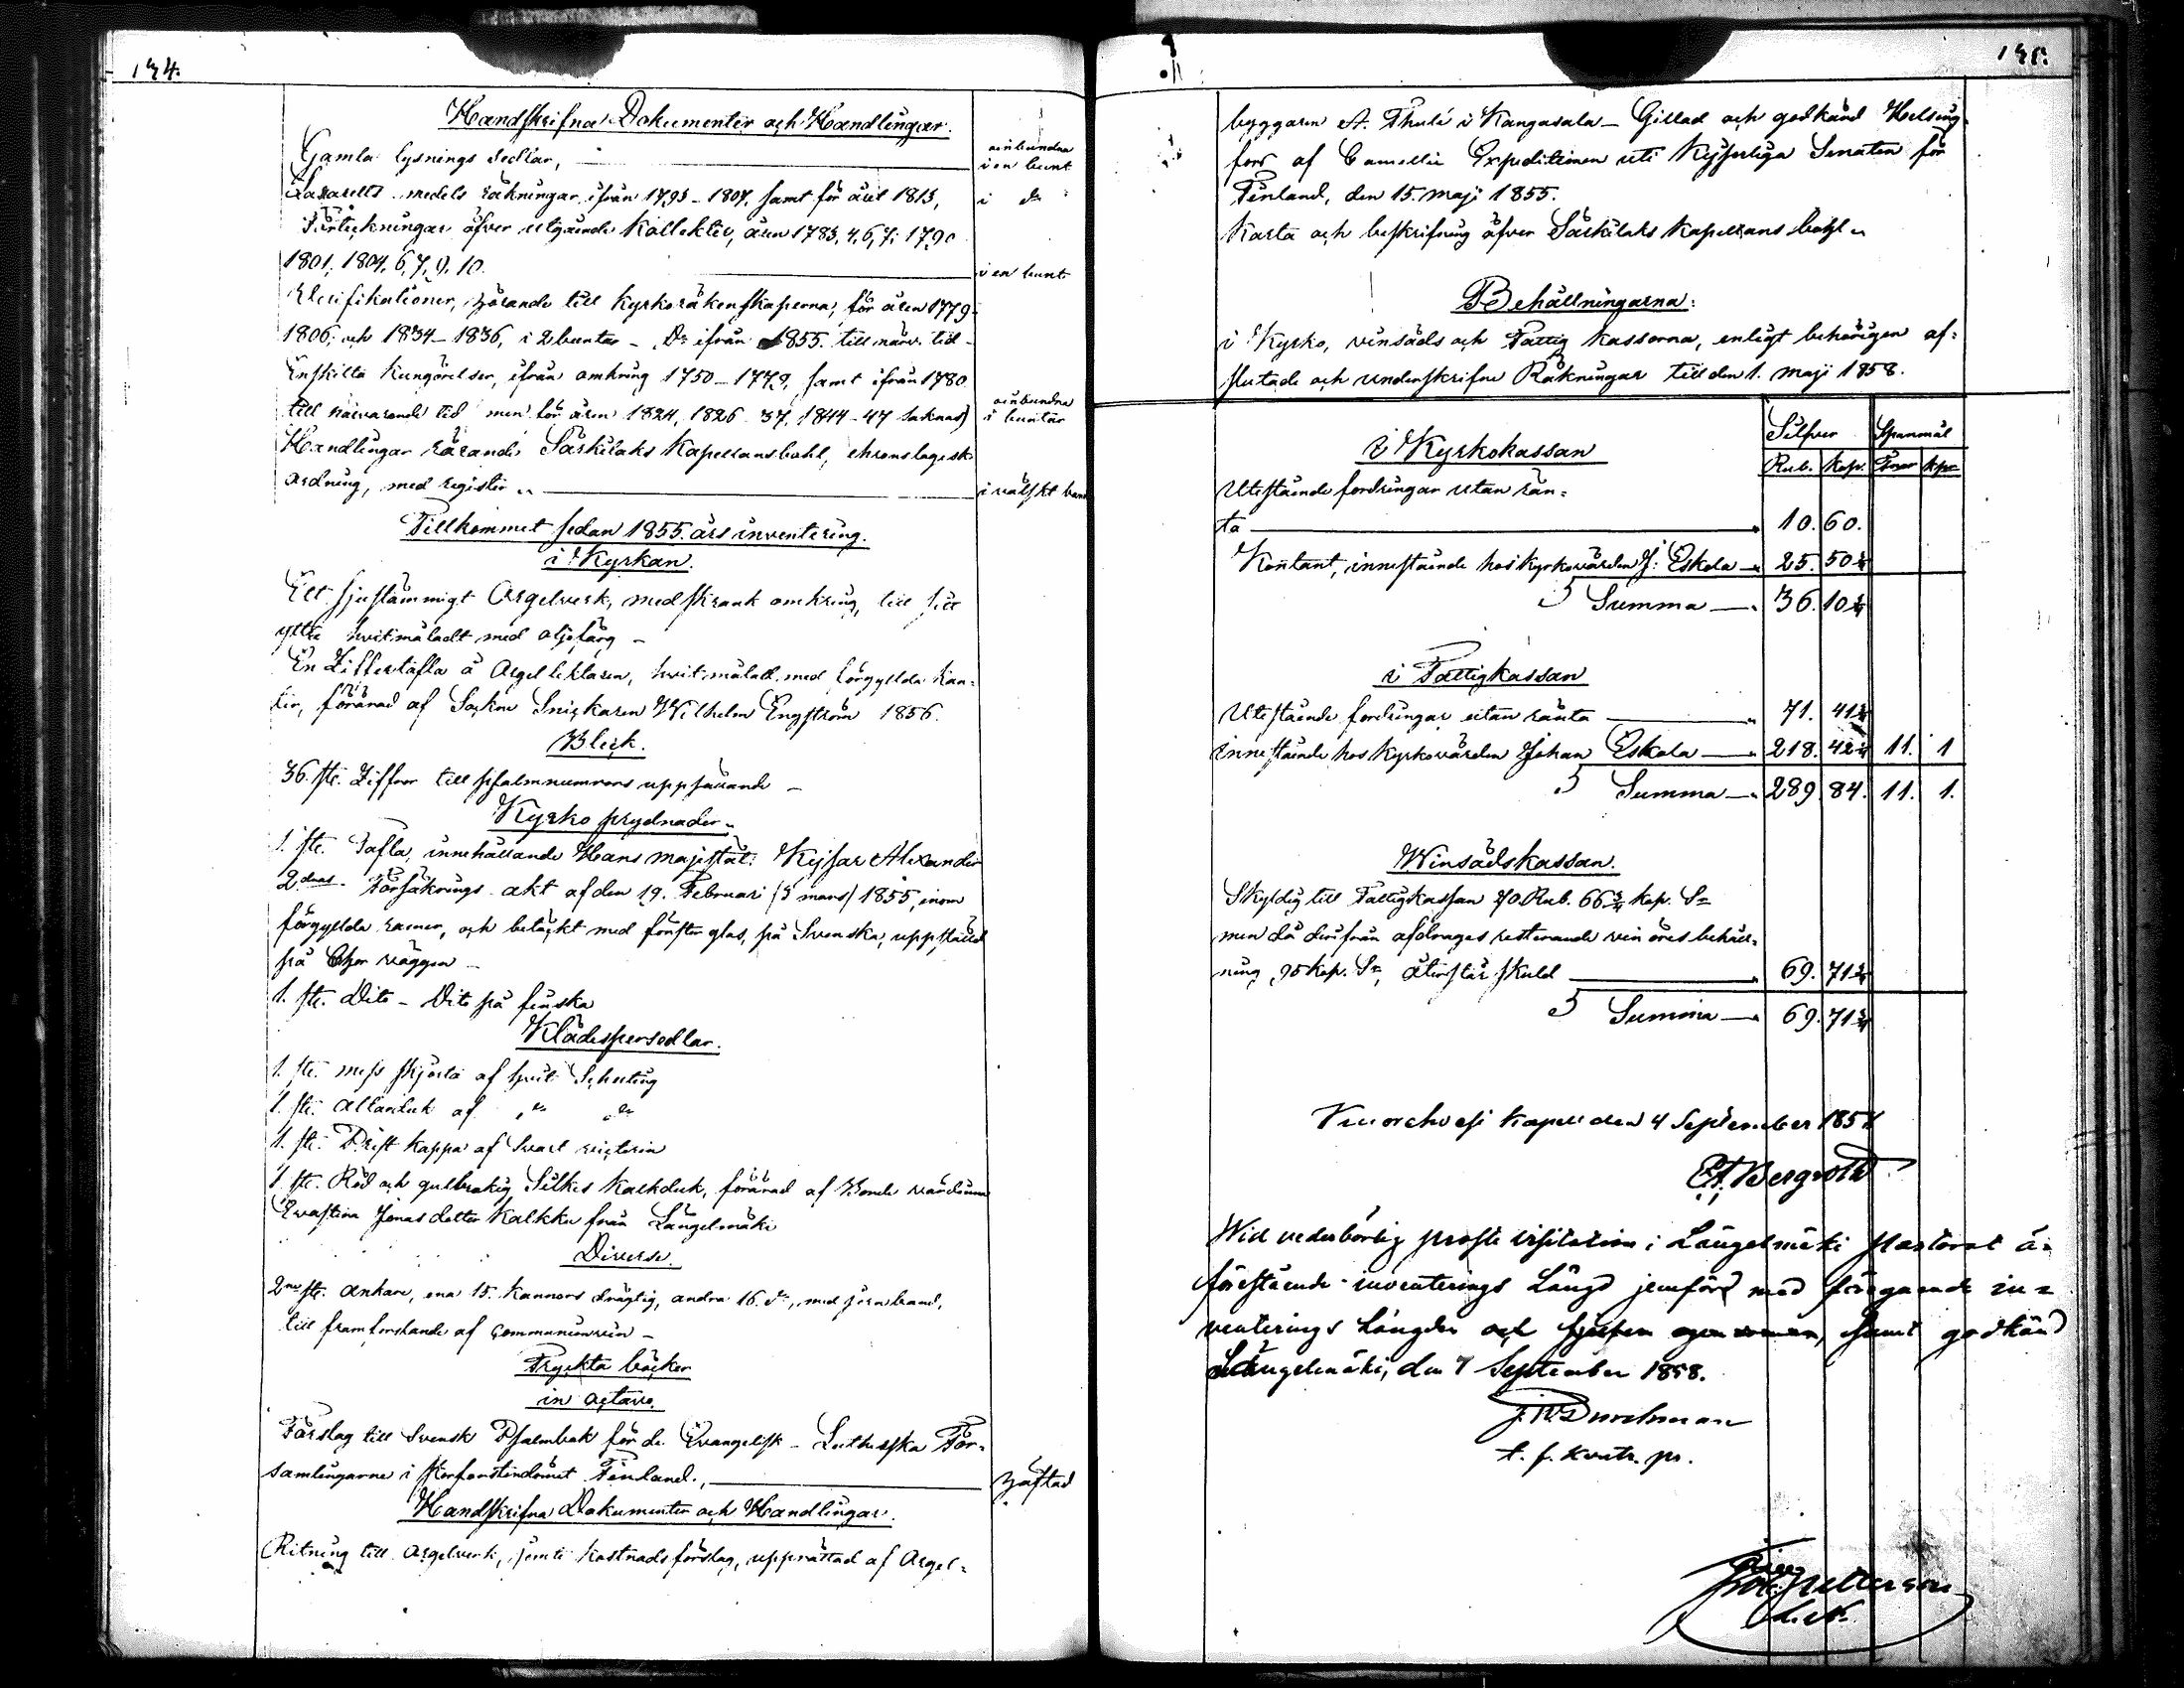 134.
Handskrifna Dokumenter och Handlingar.
Gamla lysnings sedlar, oinbundna i en bunt
Lasaretts medels räkningar, ifrån 1793–1807, samt för året 1813, i do
Förteckningar öfver utgående Kollekter, åren 1783, 4, 6, 7; 1790
1801, 1804, 6, 7, 9, 10. i en bunt
Verifikationer, hörande till Kyrkoräkenskaperna, för åren 1779–
1806, och 1834–1836, i 2 buntar – Do ifrån 1855 till närv. tid –
Enskilta Kungörelser, ifrån omkring 1750–1779, samt ifrån 1780
till närvarande tid men för åren 1824, 1826 37, 1844–47 saknas) oinbundna i buntar
Handlingar rörande Särkilaks Kapellansbohl, chronologisk
ordning, med register „ i wälskt band
Tillkommet sedan 1855. års inventering.
i Kyrkan.
Ett sjustämmigt Orgelverk, med skrank omkring, till sitt
yttre hvitmåladt med oljefärg –
En Ziffertafla å Orgellektaren, hvitmålad med förgyllda kan-
ter, förärad af Sockne Snickaren Wilhelm Engström 1856.
Bleck.
36. st. Ziffror till psalmnumrors uppsättande –
Kyrko prydnader „
1. st. Tafla, innehållande Hans Majestät Kejsar Alexander
2dras Försäkrings akt af den 19. Februari (3 mars) 1855, inom
förgyllda ramar, och betäckt med fönster glas, på Svenska, uppstäld
på Chor väggen –
1. st. Dito – Dito på finska
Klädespersedlar.
1. st. mess skjorta af hvit Schirting
1. st. altarduk af do do
1. st. Prest kappa af Svart
1. st. Röd och gulbrokig Silkes Kalkduk, förärad af Bonde värdinnan
Evastina Jonasdotter Kalkku från Längelmäki
Diverse.
2ne st. ankare, ena 15. Kannors drägtig, andra 16. do, med jern band,
till framforslande af communionvin –
Tryckta böcker
in octavo.
Förslag till Svensk Psalmbok för de Evangelisk-Lutherska För-
samlingarne i Storfurstendömet Finland., häftad
Handskrifna Dokumenter och Handlingar.
Ritning till orgelverk, jemte kostnadsförslag, upprättad af Orgel-
135.
byggaren A. Thulé i Kangasala – Gillad och godkänd Helsing-
fors af Camerallie Expeditionen uti Kejserliga Senaten för
Finland, den 15. maji 1855.
Karta och beskrifning öfver Särkilaks Kapellans bohl „
Behållningarna:
i Kyrko, vinsäds och Fattig kassorna, enligt behörigen af-
slutade och underskrifne Räkningar till den 1. maji 1858.
Silfver Spanmål
Rub. Kop. Tnor kpr
i Kyrkokassan
Utestående fordringar utan rän-
ta 10. 60.
Kontant, innestående hos kyrkovärden J: Eskola 25. 50¾
Summa 36. 10¾
i Fattigkassan
Utestående fordringar utan ränta 71. 41¾
innestående hos Kyrkovärden Johan Eskola 218. 42¼ 11. 1
Summa 289. 84. 11. 1.
Winsädskassan.
Skyldig till Fattigkassan 70 Rub. 66¾ kop. Sr
men då derifrån afdrages resterande vin öres behåll-
ning, 95 kop. Sr, återstår skuld 69. 71¾
Summa 69. 71¾
Kuorehvesi Kapell den 4 September 1858
Bergroth
Wid vederbörlig proste visitation i Längelmäki Pastorat ä-
förestående inventerings Längd jemförd med föregående in-
venterings Längder och samt godkänd
Längelmäki, den 7 September 1858.
J. W. Durchman
t. f. kontr. pr.